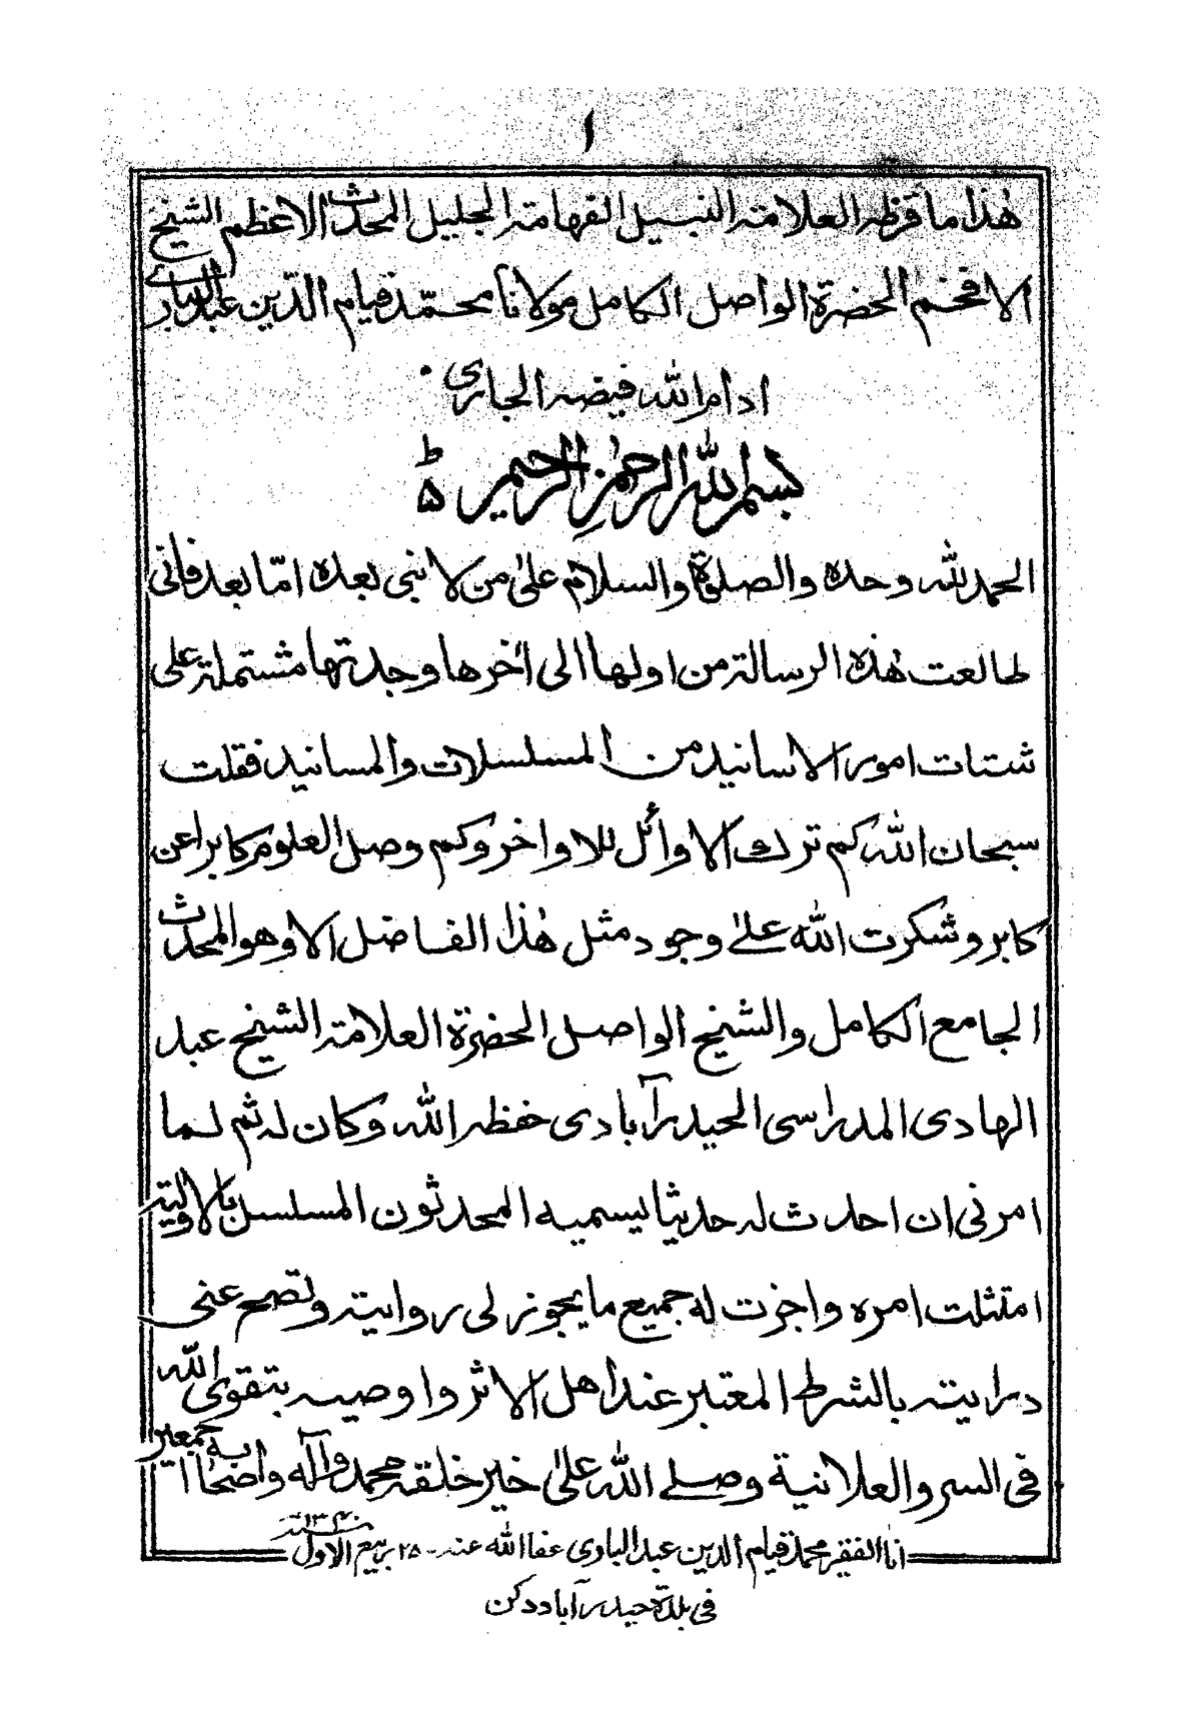 ١
هٰذا ما قرظه العلامة النبيل الفهامة الجليل المحدث الاعظم الشيخ
الافخم الحضرة الواصل الكامل مولانا محمّد قيام الدّين عبد الباري
ادام الله فيضه الجاري
بسم الله الرحمٰن الرحيم ۵ط
الحمد لله وحده والصلوٰة والسلام علىٰ من لا نبي بعده امّا بعد فاني
طالعت هٰذه الرسالة من اولها الى اٰخرها وجدتها مشتملة على
شتات امور الاسانيد من المسلسلات والمسانيد فقلت
سبحان الله كم ترك الاوائل للاواخر وكم وصل العلوم كابرا عن
كابر وشكرت الله علىٰ وجود مثل هٰذا الفاضل الا وهو المحدث
الجامع الكامل والشيخ الواصل الحضرة العلامة الشيخ عبد
الهادى المدراسى الحيدرآبادى حفظه الله وكان له ثم لما
امرنى ان احدث له حديثا يسميه المحدثون المسلسل بالاولية
امتثلت امره واجزت له جميع ما يجوز لى روايته وتصح عنى
درايته بالشرط المعتبر عند اهل الاثر واوصيه بتقوى الله
فى السر والعلانية وصلے الله علىٰ خير خلقه محمد وآله واصحابه اجمعين
انا الفقير محمد قيام الدين عبد الباري عفا الله عنه - ٢٥ ربيع الاول سنة ١٣٤٠
فى بلدة حيدرآباد دكن